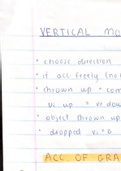 VERTICAL MO
• choose direction
• if acc freely (no
• thrown up
vi up = vi down
• object thrown up
• dropped vi = 0
ACC OF GRA